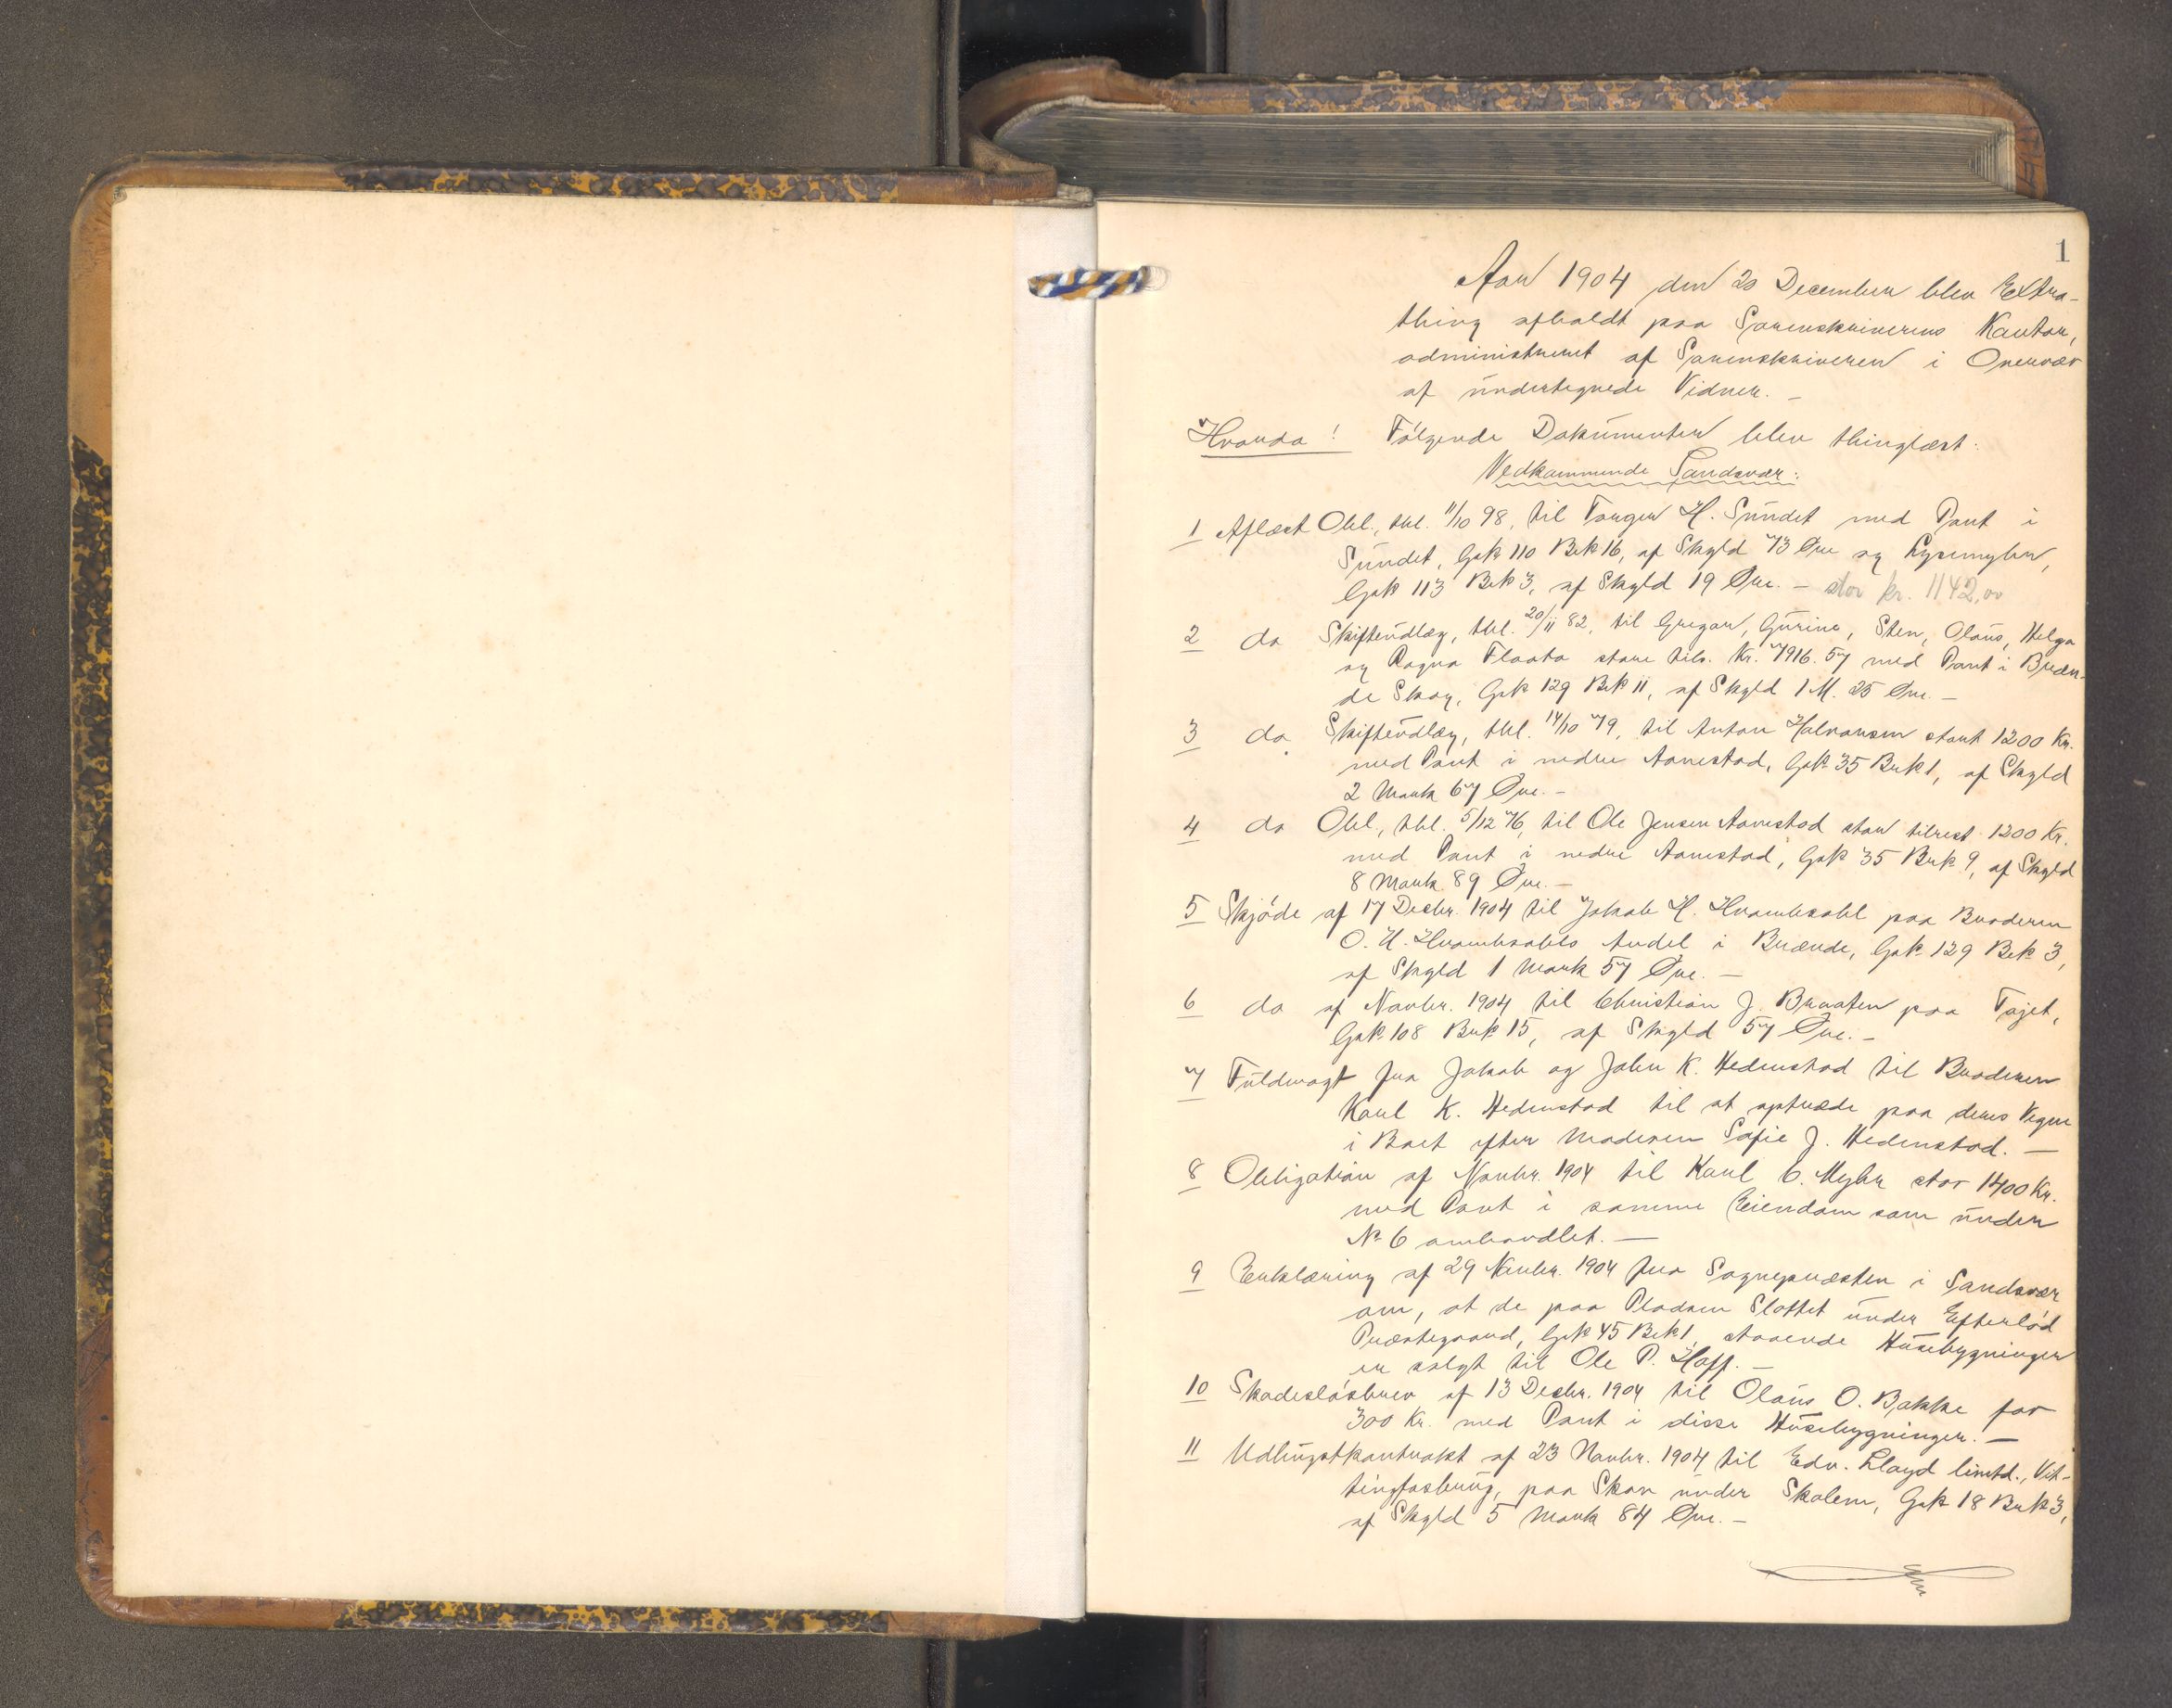 1
Aar 1904 den 20 December blev Extra-
thing afholdt paa Sorenskriverens Kontor,
administreret af Sorenskriveren i Overvær
af undertegnede Vidner. —
Hvorda! Følgende Dokumenter blev thinglæst:
Vedkommende Sandsvær:
1 Aflæst Obl., thl. 11/10 98, til Torger H. Sundet med Pant i
Sundet, Gnk 110 Brk 16, af Skyld 73 Øre og Lysemyhr,
Gnk 113 Brk 3, af Skyld 19 Øre. — stor kr. 1142,00
2 do Skifteudlæg, thl. 20/11 82, til Gregar, Gurine, Sten, Olaus, Helga
og Ragna Flaata store tils. Kr. 7916.57 med Pant i Bræn-
de Skog, Gnk 129 Brk 11, af Skyld 1 M. 25 Øre. —
3 do Skifteudlæg, thl. 14/10 79, til Anton Halvorsen stort 1200 Kr.
med Pant i nedre Aavestad, Gnk 35 Brk 1, af Skyld
2 Mark 67 Øre. —
4 do Obl., thl. 5/12 76, til Ole Jensen Aavestad stor tilrest 1200 Kr.
med Pant i nedre Aavestad, Gnk 35 Brk 9, af Skyld
8 Mark 89 Øre. —
5 Skjøde af 17 Decbr. 1904 til Jakob H. Hvambsahl paa Broderen
O. H. Hvambsahls Andel i Brænde, Gnk 129 Brk 3,
af Skyld 1 Mark 57 Øre. —
6 do af Novbr. 1904 til Christian J. Braaten paa Fajet,
Gnk 108 Brk 15, af Skyld 57 Øre. —
7 Fuldmagt fra Jakob og John K. Hedenstad til Broderen
Karl K. Hedenstad til at optræde paa deres Vegne
i Boet efter Moderen Sofie J. Hedenstad. —
8 Obligation af Novbr. 1904 til Karl C. Myhr stor 1400 Kr.
med Pant i samme Eiendom som under
No 6 omhandlet. —
9 Erklæring af 29 Novbr. 1904 fra Sognepræsten i Sandsvær
om, at de paa Pladsen Slottet under Efterlød
Præstegaard, Gnk 45 Brk 1, staaende Husebygninger
er solgt til Ole P. Hoff. —
10 Skadesløsbrev af 13 Decbr. 1904 til Olaus O. Bakke for
300 Kr. med Pant i disse Husebygninger. —
11 Udhugstkontrakt af 23 Novbr. 1904 til Edv. Lloyd limtd., Vit-
tingfosbrug, paa Skov under Skolem, Gnk 18 Brk 3,
af Skyld 5 Mark 84 Øre. —